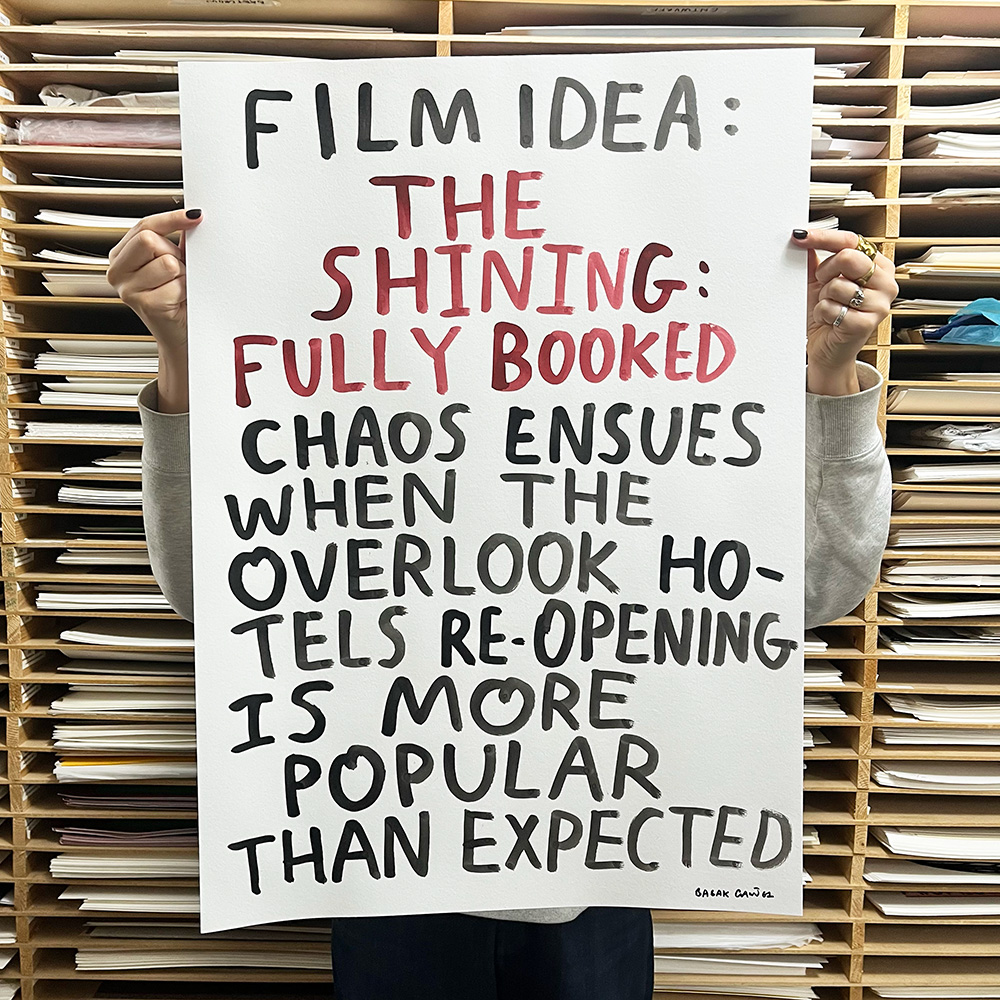 FILM IDEA:
THE
SHINING:
FULLY BOOKED
CHAOS ENSUES
WHEN THE
OVERLOOK HO-
TELS RE-OPENING
IS MORE
POPULAR
THAN EXPECTED